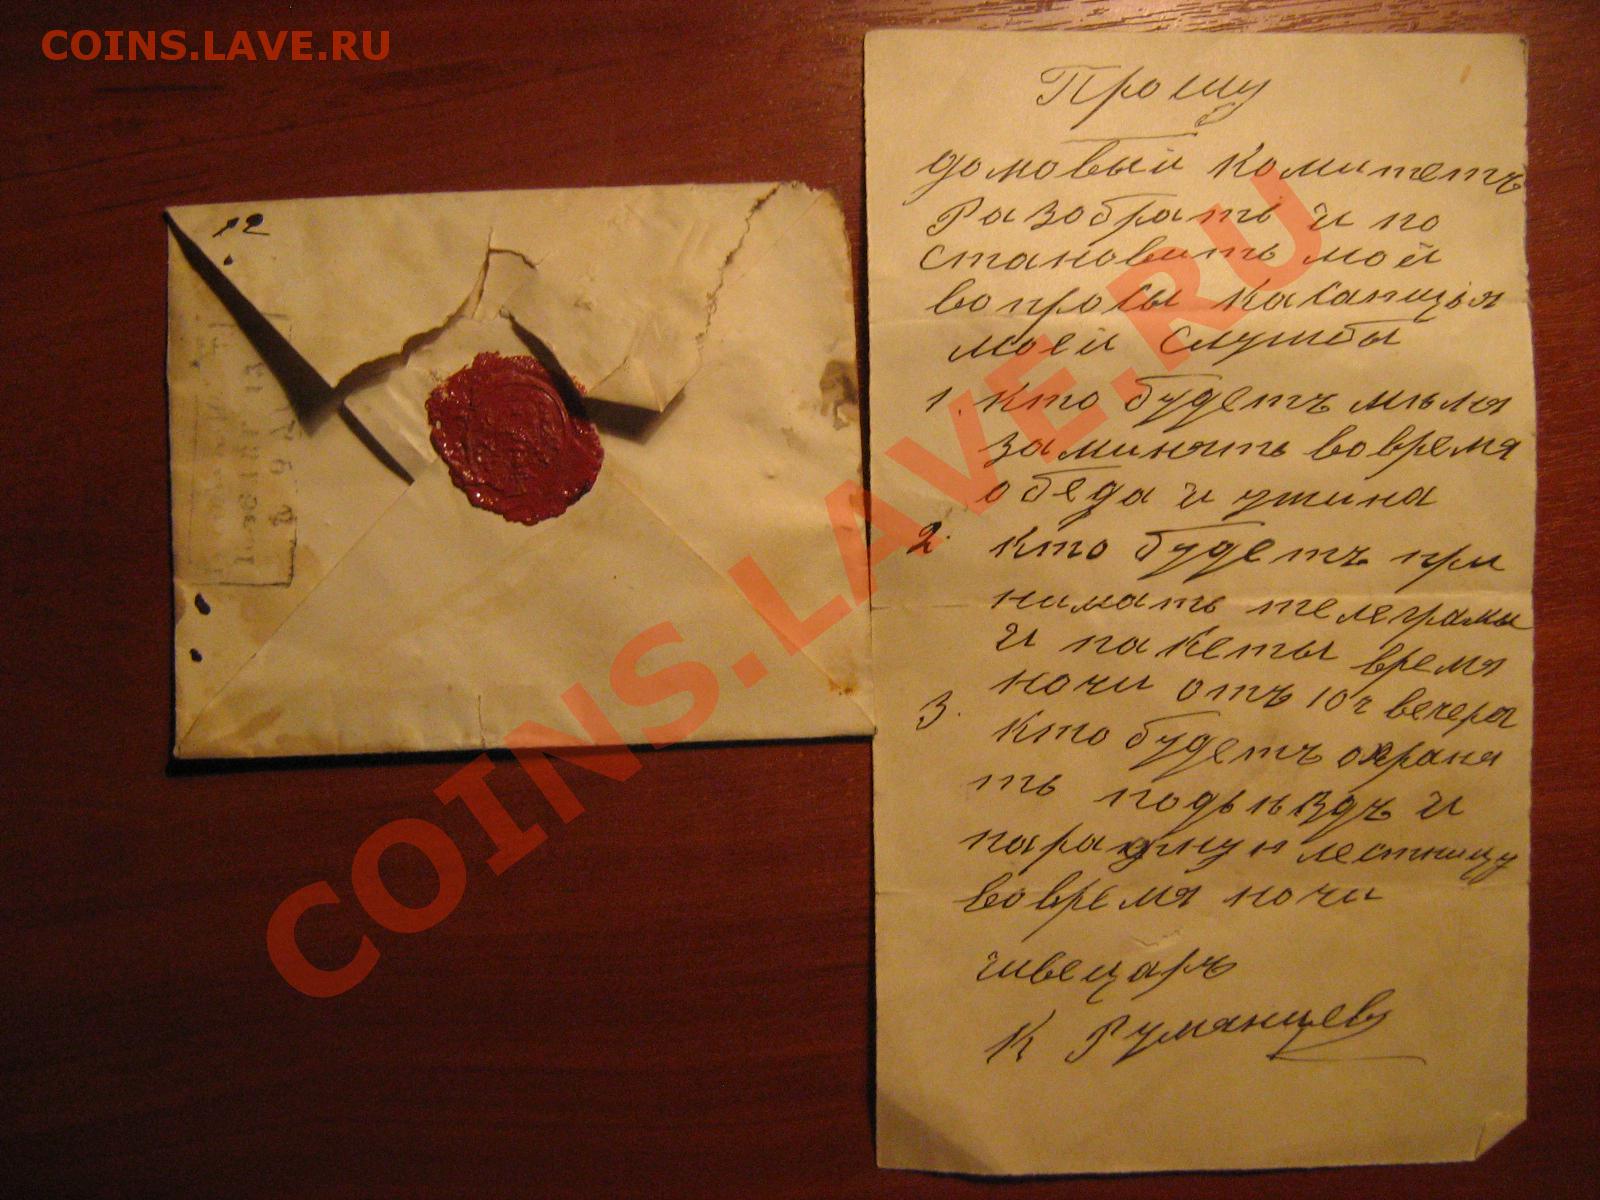 COINS.LAVE.RU
12
Прошу
домовый комитетъ
Разобрать и по
становить мой
вопросы
моей службы
1. кто будетъ меня
заминять во время
обеда и ужина
2. кто будетъ при
нимать телеграмы
и пакеты время
ночи отъ 10 ч вечера
3. кто будетъ охраня
ть подъѣздъ и
парадную лестницу
во время ночи
швецаръ
К Румянцев
COINS.LAVE.RU